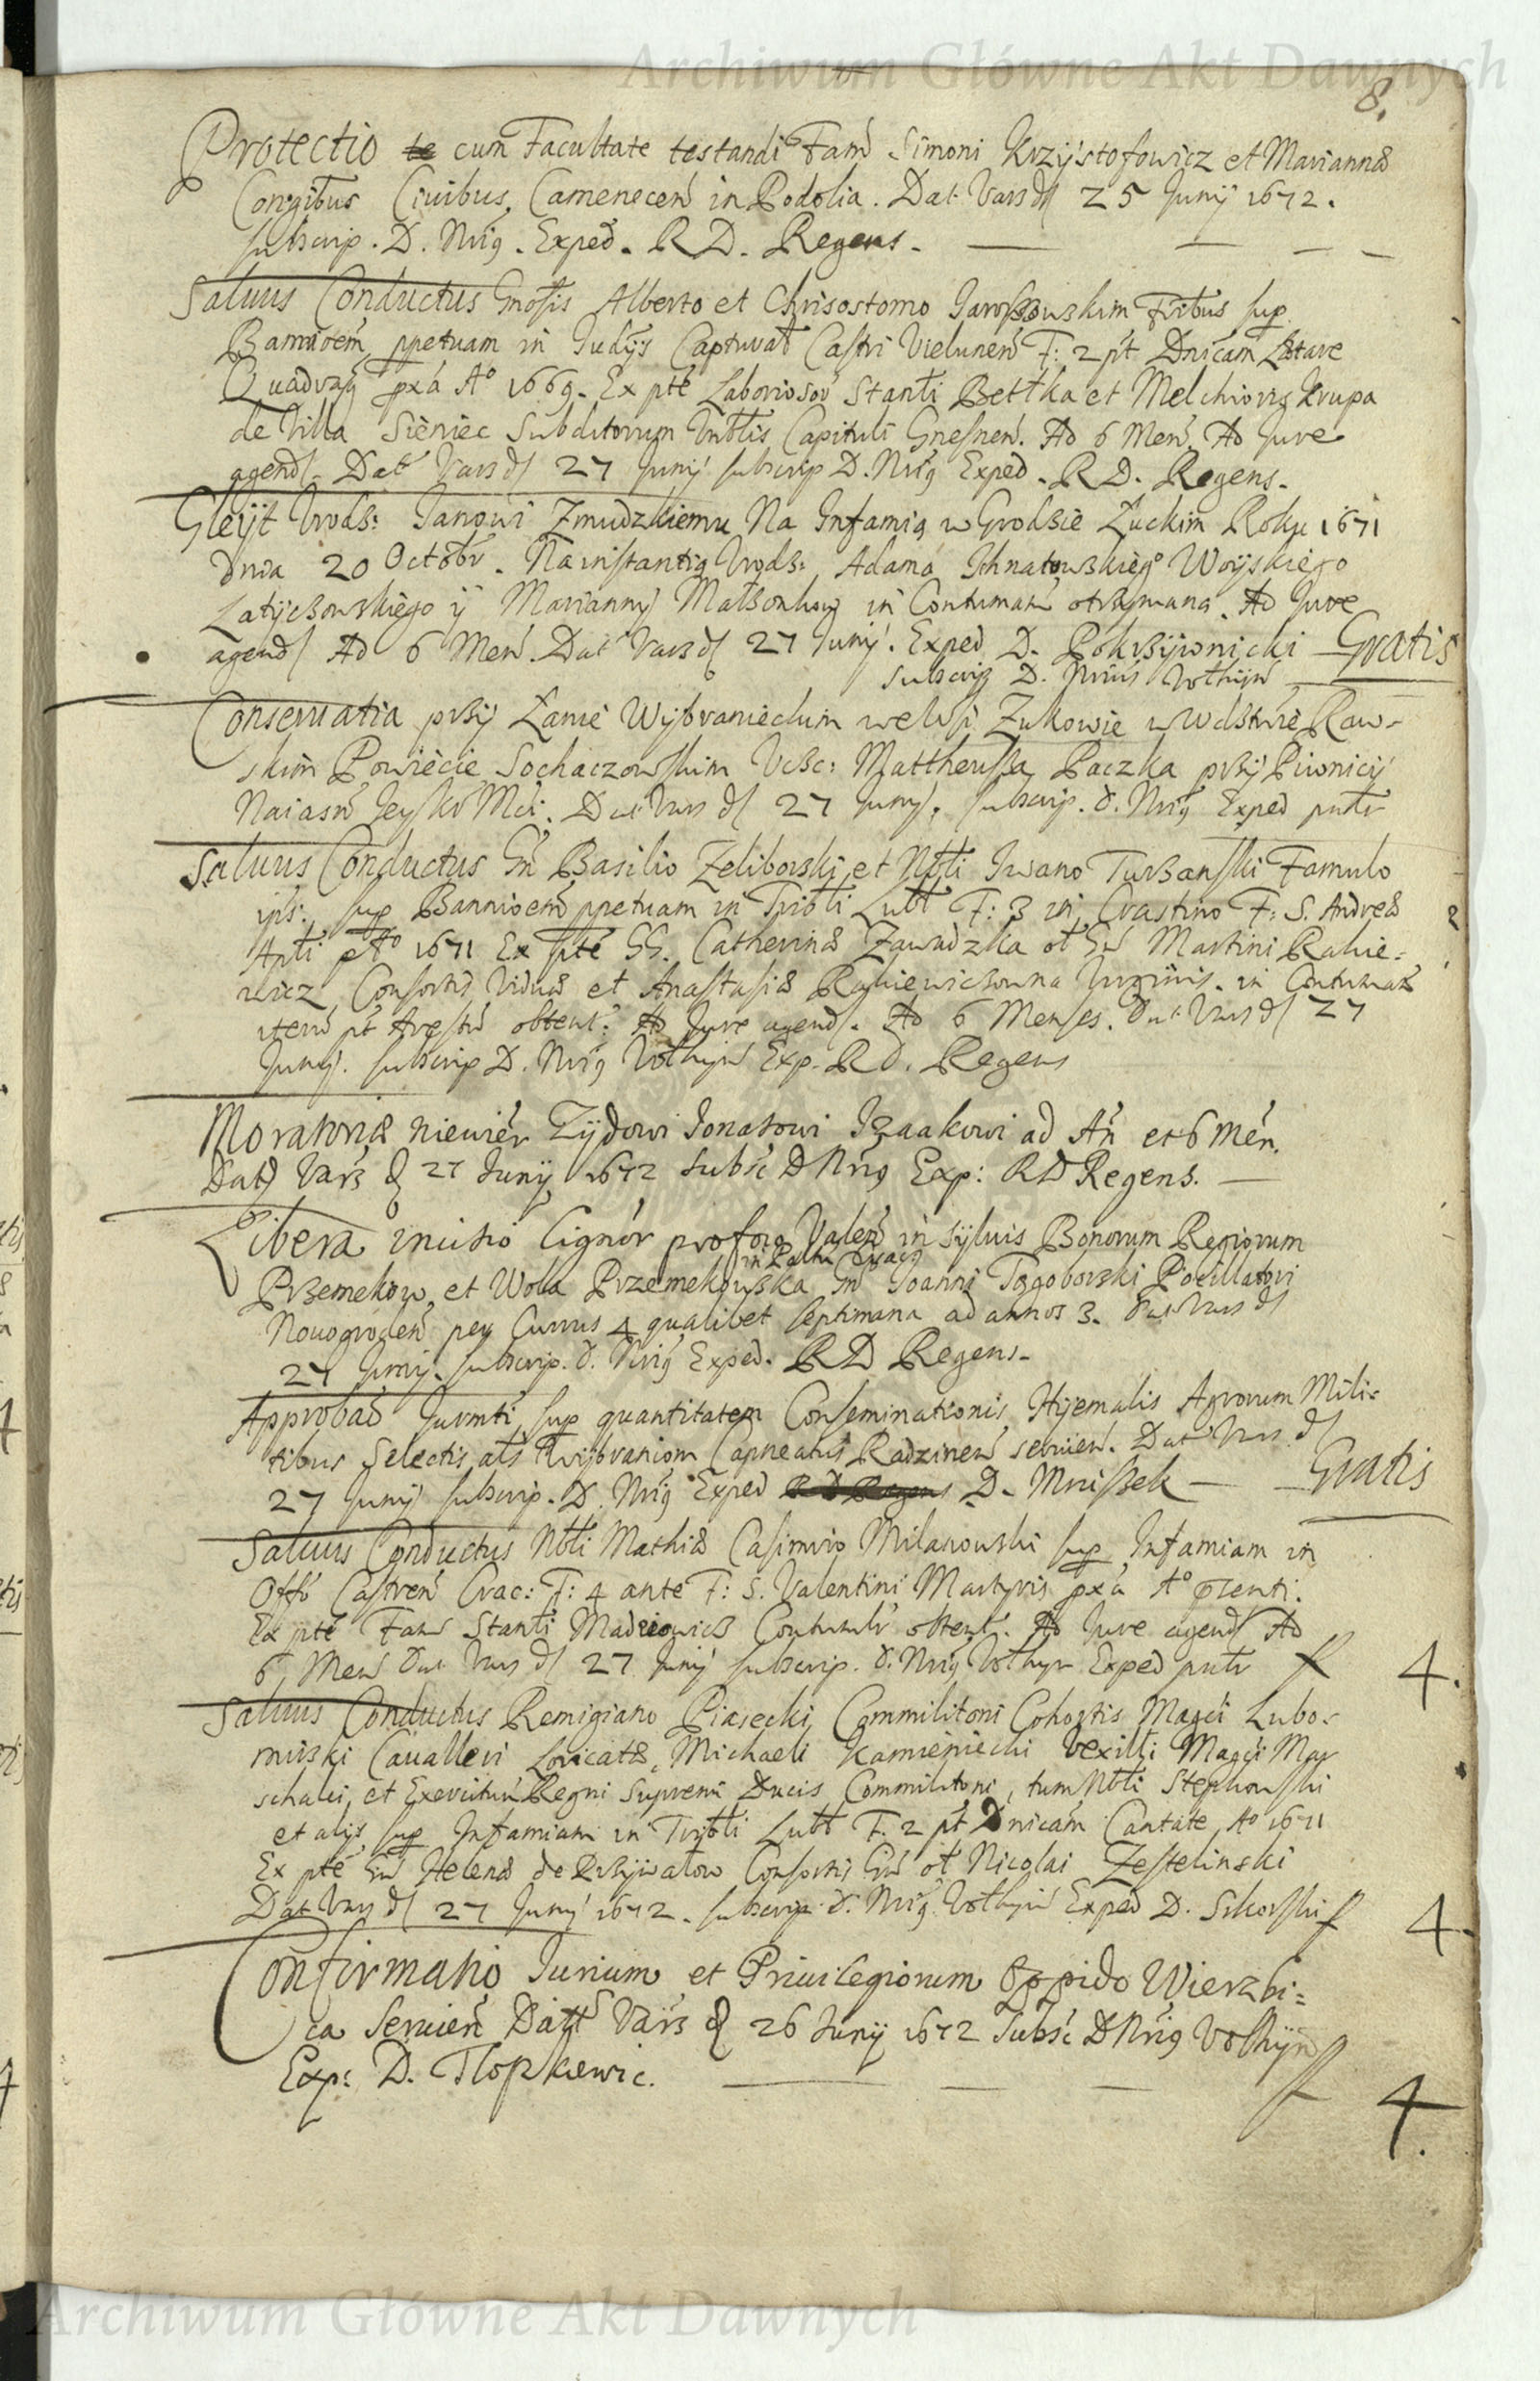 Archiwum Główne Akt Dawnych
8.
Protectio te cum Facultate testandi Fam Simoni Krzÿstofowicz et Mariannæ
Congibus Ciuibus Camenecen in Podolia. Dat Vars d 25 Junÿ 1672.
subscrip. D. Nrig. Exped. R D. Regens.
Saluus Conductus Gnosis Alberto et Chrisostomo Jaroszowskim Fribus sup
Bannioem ppetuam in Judÿs Capturat Castri Vielunen F: 2 pt Dnicam Lætare
Quadrag pxa Ao 1669. Ex pte Laboriosor Stanli Bettka et Melchioris Krupa
de Villa Sieniec Subditorum Vnblis Capituli Gnesnen. Ad 6 Men. Ad Jure
agend. Dat Vars d 27 Junÿ subscrip D. Nrig Exped. R D. Regens.
Gleÿt Vrodz: Janowi Zmudzkiemu Na Infamią w Grodzie Łuckim Roku 1671
dnia 20 Octobr. Na instantią Vrodz: Adama Ihnatowskiego Woÿskiego
Latÿczowskiego ÿ Mariannÿ Małzonkow in Contumam otrzymaną. Ad Jure
agend Ad 6 Men. Dat Vars d 27 Junÿ. Exped D. Pokrzÿwnicki Gratis
Subscrip D. Nrius Volhÿn
Conseruatia przÿ Łanie Wÿbranieckim we Wsi Zukowie w Wdztwie Raw-
skim Powiecie Sochaczowskim Vczc: Mattheusza Paczka przÿ Piwnicÿ
Naiasn Jeÿ Kr Mci. Dat Vars d 27 Junÿ. subscrip. d. Nrig Exped pntr
Saluus Conductus Gn Basilio Zeliborski et Nbli Iwano Turzanski Famulo
ips: sup Bannioem ppetuam in Tribli Lubl F: 3 in Crastino F: S. Andreæ
Apli Ao 1671 Ex pte GG. Catherinæ Zawadzka ol Gn Martini Rakie-
wicz Consortis Viduæ et Anastasiæ Rakiewiczowna Virginis. in Contumam
item pt Arestu obtent. Ad Jure agend. Ad 6 Menses. Dat Vars d 27
Junÿ. subscrip D. Nrig Volhÿn Exp. R D. Regens
Moratoriæ niewier Zÿdowi Jonasowi Izaakowi ad An et 6 Men.
Dat Vars d 27 Junÿ 1672 Subsc D Nrig Exp: R D Regens.
Libera incisio lignor pro foco Valen in sÿluis Bonorum Regiorum
in Paltu Crac
Przemekow et Wola Przemekowska Gn Joanni Togoborski Pocillatori
Nouogroden per Currus 4 qualibet septimana ad annos 3. Dat Vars d
27 Junÿ. subscrip. d. Nrig Exped. R D Regens.
Approbao Jurmti sup quantitatem Conseminationis Hÿemalis Agrorum Mili-
tibus Selectis als Wÿbraniom Capneatus Radzinen seruien. Dat Vars d
27 Junÿ subscrip. D. Nrig Exped R D Regens D. Mriszek Gratis
Saluus Conductus Nbli Mathiæ Casimiro Milanowski sup Infamiam in
Offo Castren Crac: F: 4 ante F: S. Valentini Martyris pxa Ao pnti.
Ex pte Fam Stanli Madziowicz Contumlr obtent. Ad Jure agend Ad
6 Men Dat Vars d 27 Junÿ subscrip. d. Nrig Volhyn Exped pntr f 4.
Saluus Conductus Remigiano Piasecki Commilitoni Cohortis Magci Lubo-
mirski Cauallevi Loricatæ, Michaeli Kamieniecki Vexilli Magci Mar
schalci, et Exercituu Regni Supremi Ducis Commilitoni, tum Nbli Stepkowski
et alÿs sup Infamiam in Tribli Lubl F. 2 pt Dnicam Cantate Ao 1671
Ex pte Gn Helenæ de Przÿwałow Consortis Gn ol Nicolai Zestelinski
Dat Vars d 27 Junÿ 1672. subscrip d. Nrig Volhÿn Exped D. Sikorski f 4.
Confirmatio Jurium et Priuilegiorum Oppido Wierzbi=
ca Seruien Datt Vars d 26 Junÿ 1672 Subsc D Nrig Volhÿn
Exp: D. Tlopkiewic. f 4.
Archiwum Główne Akt Dawnych